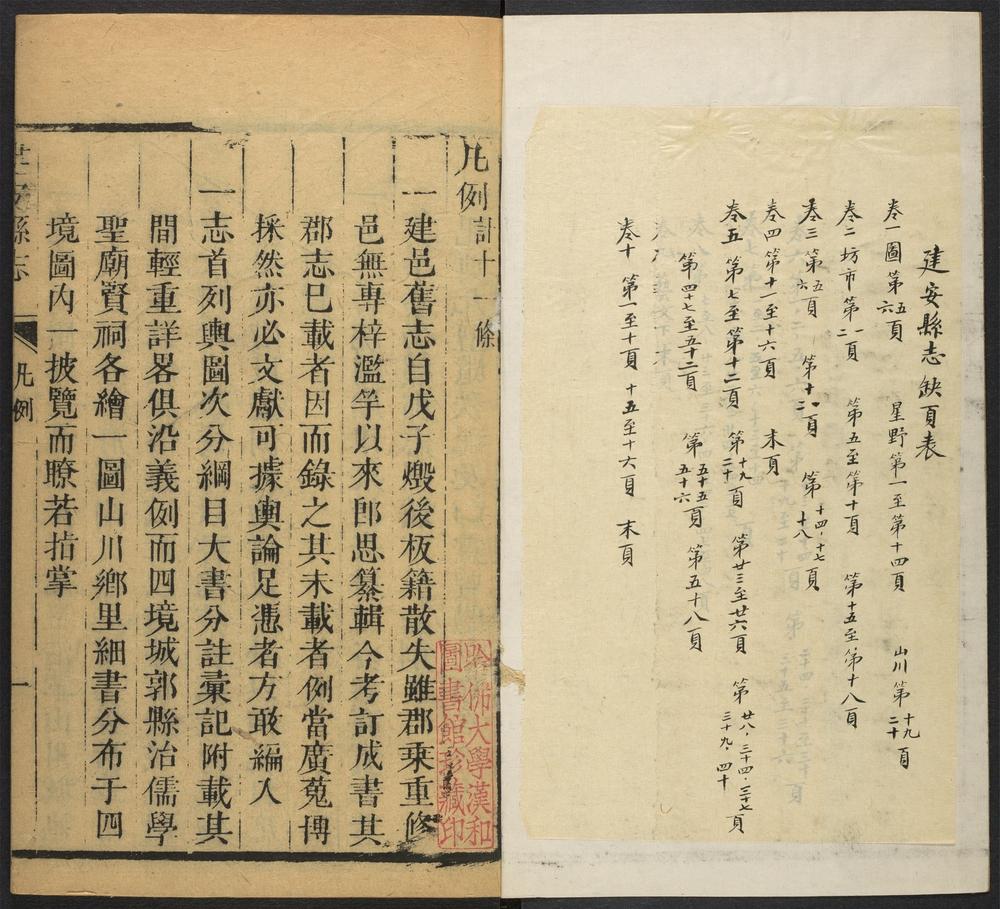 建安縣志缺頁表
卷一圖第五六頁 星野第一至第十四頁 山川第十九二十頁
卷二坊市第一二頁 第五至第十頁 第十五至第十八頁
卷三第五六頁 第十一二頁 第十四、十七十八頁
卷四第十一至十六頁 末頁
卷五 第七至第十二頁 第十九二十頁 第廿三至廿六頁 第廿八、三十四、三十七三十九、四十頁
第四十七至五十二頁 第五十五五十六頁 第五十八頁
卷十 第一至十頁 十五至十六頁 末頁
凡例計十一條
一建邑舊志自戊子燬後板籍散失雖郡乘重修
邑無專梓濫竽以來即思纂輯今考訂成書其
郡志已載者因而錄之其未載者例當廣蒐博
採然亦必文獻可據輿論足憑者方敢編入
一志首列輿圖次分綱目大書分註彙記附載其
間輕重詳畧俱沿義例而四境城郭縣治儒學
聖廟賢祠各繪一圖山川鄉里細書分布于四
境圖內一披覽而瞭若指掌
安縣志 凡例 一
哈佛大學漢和
圖書館珍藏印